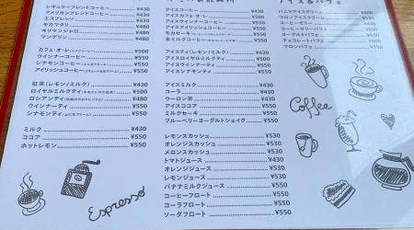 レギュラーブレンドコーヒー ¥430
アメリカンブレンドコーヒー ¥430
エスプレッソ ¥430
モカマタリ ¥500
キリマンジャロ ¥500
マンデリン ¥500
カフェ・オ・レ ¥500
ウィンナーコーヒー ¥550
シナモンコーヒー ¥550
アイリッシュコーヒー ¥550
紅茶(レモン/ミルク) ¥430
ロイヤルミルクティ ¥500
ロシアンティ ¥550
ウインナーティ ¥550
シナモンティ ¥550
ミルク ¥430
ココア ¥550
ホットレモン ¥550
アイスコーヒー
アイスカフェ・オ・レ
アイスティ(レモン/ミルク) ¥430
アイスロイヤルミルクティ ¥550
アイスシナモンティ ¥550
アイスミルク ¥430
コーラ ¥430
ウーロン茶 ¥430
アイスココア ¥550
ミルクセーキ ¥550
ブルーベリーヨーグルトシェイク ¥550
レモンスカッシュ ¥550
オレンジスカッシュ ¥550
メロンスカッシュ ¥550
トマトジュース ¥430
オレンジジュース ¥550
レモンジュース ¥550
バナナミルクジュース ¥550
コーヒーフロート ¥550
コーラフロート ¥550
ソーダフロート ¥550
アイス&パフェ
バニラアイスクリーム
マロンパフェ
Coffee
Espresso